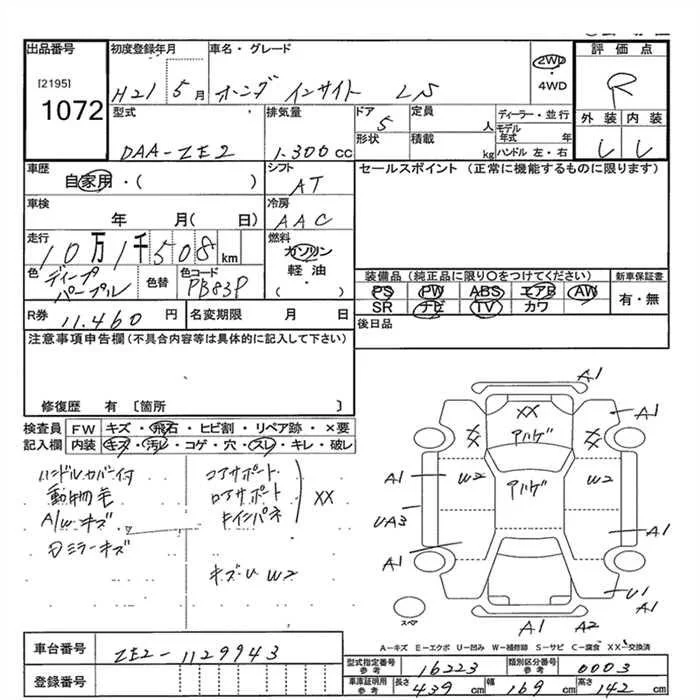 出品番号 初度登録年月 車名・グレード 2WD 評価点
[2195] H21 5月 ホンダ インサイト LS ・4WD R
1072 型式 排気量 ドア 定員 ディーラー・並行 外装 内装
DAA-ZE2 1.300cc 5 人 モデル年式 年
形状 積載 kg ハンドル 左・右
車歴 シフト セールスポイント (正常に機能するものに限ります)
自家用・( ) AT
車検 冷房
年 月( 日) AAC
走行 燃料
10万1千508km ガソリン
色 ディープパープル 色替 色コード PB83P 軽油・( ) 装備品 (純正品に限り○をつけてください) 新車保証書
PS PW ABS エアB AW 有・無
SR ナビ TV カワ
R券 11.460円 名変期限 月 日 後日品
注意事項申告欄 (不具合内容等は具体的に記入して下さい)
修復歴 有 [箇所 ]
検査員 FW キズ・飛石・ヒビ割・リペア跡・×要
記入欄 内装 キズ・汚レ・コゲ・穴・スレ・キレ・破レ
ハンドルカバー付 コアサポート
動物毛 ロアサポート XX
A/Wキズ キインパネ
ミラーキズ
キズU W2
A1
XX A1
XX アハゲ XX
A1 W2 アハゲ W2
UA3
A1 A1
U1
A1 A2
スペア
A-キズ E-エクボ U-凹み W-補修跡 S-サビ C-腐食 XX-交換済
車台番号 ZE2-1129943
型式指定番号 参考 16223 類別区分番号 参考 0003
登録番号 車庫証明用 参考 長さ 439cm 幅 169cm 高さ 142cm